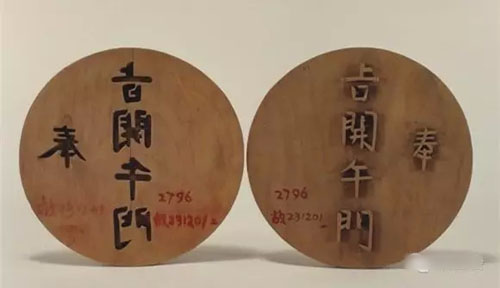 奉
旨開午門
2796
故231201
奉
旨開午門
2796
故231201